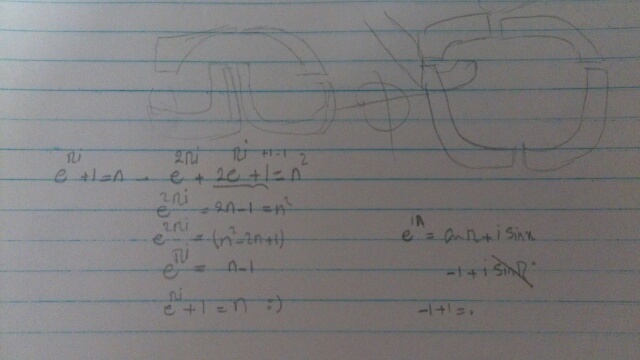 e^{πi} +1=n → e^{2πi} + 2e^{πi} +1 = n^2
+1-1
e^{2πi} = 2n-1 = n^2
e^{2πi} = (n^2-2n+1)
e^{πi} = n-1
e^{πi} +1 = n :)
e^{iπ} = cosπ + i sinπ
-1 + i sinπ
-1+1=.